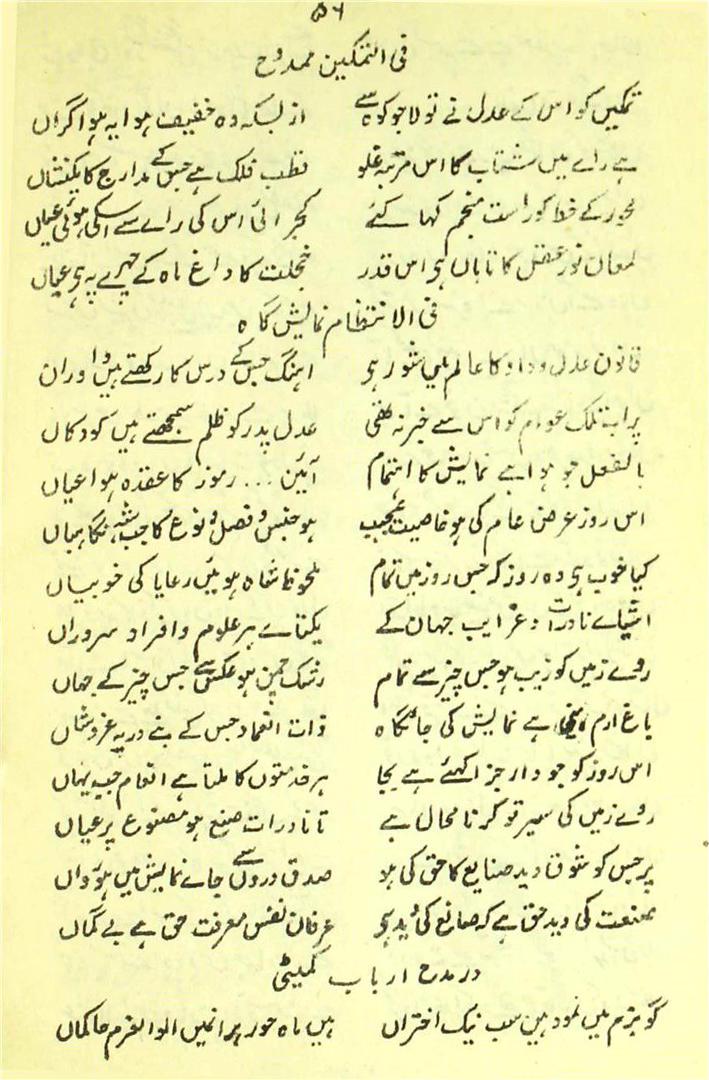 ۵۶
فی التمکین ممدوح
تمکیں کو اس کے عدل نے تولا جو کوہ سے از بسکہ وہ خفیف ہوا یہ ہوا گراں
ہے راے میں شتاب کا اس مرتبہ غلو قطب فلک ہے جس کے مدارج کا یکنشاں
محور کے خط کو راست منجم کہا کئے کجرائی اس کی راے سے اسکی ہوئی عیاں
لمعان نور عقل کا تاباں ہی اس قدر خجلت کا داغ ماہ کے چہرے پہ ہی عیاں
فی الانتظام نمایش گاہ
قانون عدل و داد کا عالم میں شور ہو اہنگ جس کے درس کا رکھتے ہیں
پر ابتلک عوام کو اس سے خبر نہ تھی عدل پدر کو ظلم سمجھتے ہیں کودکاں
بالفعل جو ہوا ہے نمایش کا اہتمام آئین ... رموز کا عقدہ ہوا عیاں
اس روز عرض عام کی ہو خاصیت عجیب ہو جنس و فصل و نوع کا جب شہ نگاہباں
کیا خوب ہی وہ روز کہ جس روز میں تمام ملحوظ شاہ ہوئیں رعایا کی خوبیاں
اشیاے نادرات و غرایب جہان کے یکتاے ہر علوم و افراد سروراں
روے زمیں کو زیب ہو جس چیز سے تمام رشک چمن ہو عکس سے جس چیز کے جہاں
باغ ارم ہے نمایش کی جائگاہ ذات العماد جس کے بنے در پہ عز و شاں
اس روز کو جو دار جزا کہئے ہے بجا ہر خدمتوں کا ملتا ہے انعام جب یہاں
روے زمیں کی سیر تو کرنا محال ہے تا نادرات صنع ہو مصنوع پر عیاں
پر جس کو شوق دید صنایع کا حق کی ہو صدق دروں سے جاے نمایش میں ہو رواں
صنعت کی دید حق ہے کہ صانع کی دید ہی عرفان نفس معرفت حق ہے بے گماں
در مدح ارباب کمیٹی
گو بزم میں نمود ہین سب نیک اختراں ہیں ماہ حور پر انمیں الوالعزم حاکماں